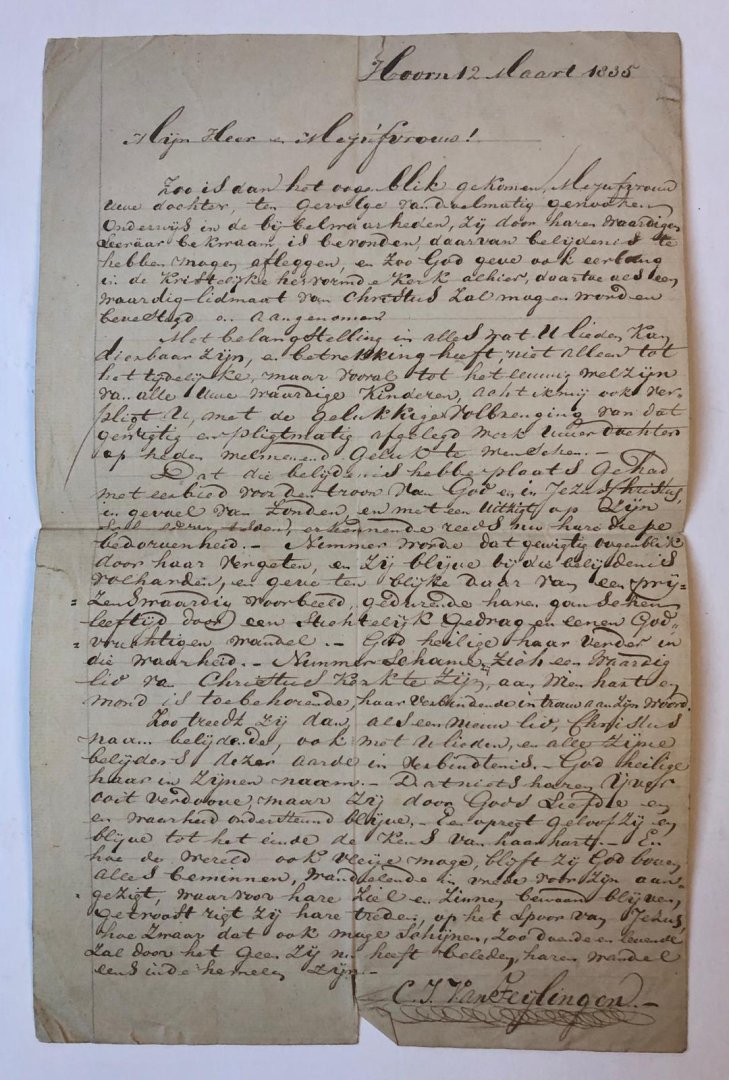 Hoorn 12 Maart 1835
Mijn Heer en Mejufvrouw!
Zoo is dan het oogenblik gekomen, Mejufvrouw
Uwe dochter, ten gevolge van doelmatig genooten
Onderwijs in de bijbelwaarheden, zij door haren waardigen
Leeraar bekwaam, is bevonden, daarvan belijdenis te
hebben mogen afleggen, en zoo God geve ook eerlang
in de Kristelijke hervormde Kerk alhier, daartoe als een
waardig-lidmaat van Christus Zal mogen worden
bevestigd en aangenomen
Met belangstelling in alles wat Ulieden kan
dierbaar zijn, en betrekking heeft, niet alleen tot
het tijdelijke, maar vooral tot het eeuwig welzijn
van alle Uwe waardige Kinderen, acht ik mij ook ver-
pligt U, met de gelukkige volbrenging van dat
gewigtig en pligtmatig afgelegd werk Uwer dochter
op heden welmeenend geluk te wenschen.-
Dat die belijdenis hebbe plaats gehad
met eerbied voor den troon van God en in Jezus Christus,
in gevoel van Zonden, en met een uitzigt op Zijn
erkennende reeds nu hare diepe
bedorvenheid.- Nimmer worde dat gewigtig oogenblik
door haar vergeten, en zij blijve bij die belijdenis
volharden, en geve ten blijke daar van een prij-
zenswaardig voorbeeld, gedurende haren ganschen
leeftijd door een Stichtelijk Gedrag en eenen God-
vruchtigen wandel.- God heilige haar verder in
die waarheid.- Nimmer Schame zich een waardig
lid van Christus Kerk te Zijn, aan Wien hart en
mond is toebehorende, haar verbindende in trouw aan zijn Woord.
Zoo treedt Zij dan, als een nieuw lid, Christus
naam belijdende, ook met Ulieden, en alle zijne
belijders dezer aarde in verbindtenis.- God heilige
haar in Zijnen naam.- Dat niets haren Ijver
ooit verdoove, maar Zij door Gods Liefde en
en waarheid ondersteund blijve.- Een opregt geloof Zij en
blijve tot het einde de Keus van haar hart.- En
hoe de wereld ook vleije moge, blijft Zij God boven
alles beminnen, wandelende in vrede voor Zijn aan-
gezigt, waarvoor hare Ziel en Zinnen bewaard blijven,
getroost rigt Zij hare treden, op het Spoor van Jezus,
hoe Zwaar dat ook moge Schijnen, Zoo doende en levende
Zal door het geen Zij nu heeft beleden, haren wandel
eens in de hemelen Zijn.-
C. J. Van Zeijlingen.-